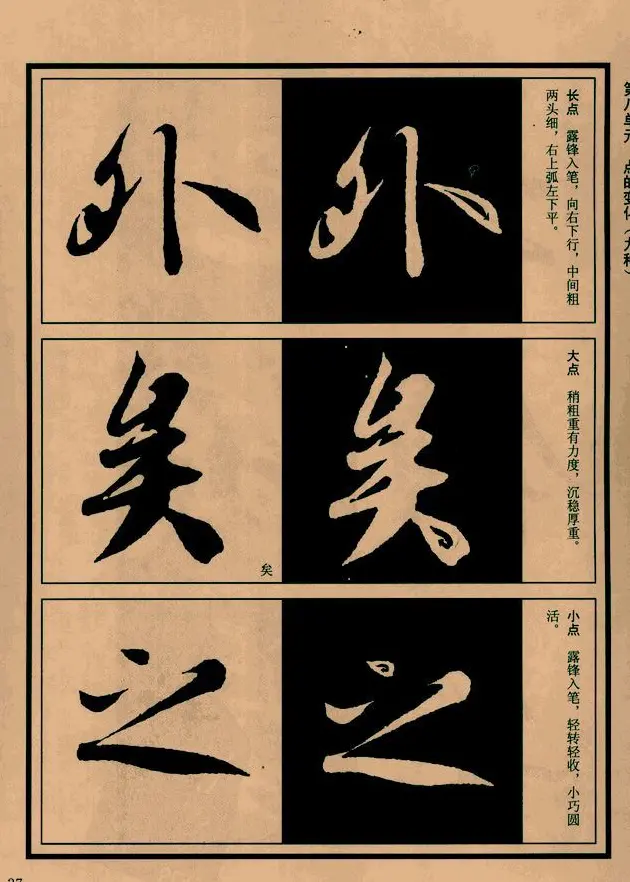 第八单元 点的变化(九种)
长点 露锋入笔，向右下行，中间粗
两头细，右上弧左下平。
外
外
大点 稍粗重有力度，沉稳厚重。
矣
矣
矣
小点 露锋入笔，轻转轻收，小巧圆
活。
之
之
27